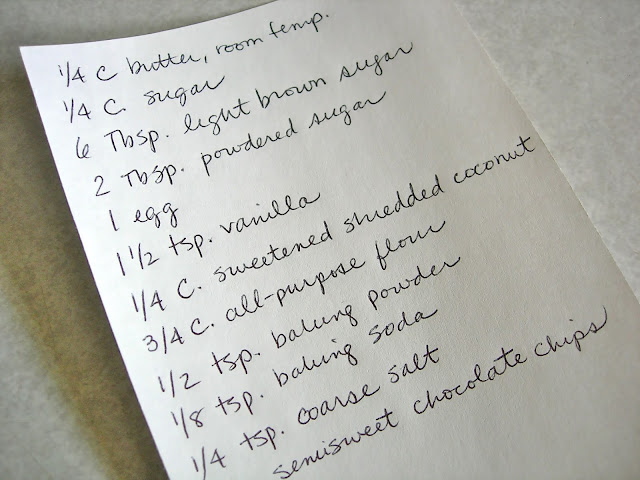 1/4 C butter, room temp.
1/4 C. sugar
6 Tbsp. light brown sugar
2 Tbsp. powdered sugar
1 egg
1 1/2 tsp. vanilla
1/4 C. sweetened shredded coconut
3/4 C. all-purpose flour
1/2 tsp. baking powder
1/8 tsp. baking soda
1/4 tsp. coarse salt
semisweet chocolate chips